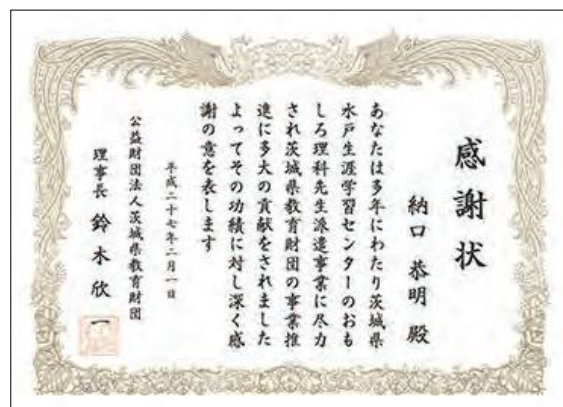 感謝状
納口恭明殿
あなたは多年にわたり茨城県
水戸生涯学習センターのおも
しろ理科先生派遣事業に尽力
され茨城県教育財団の事業推
進に多大の貢献をされました
よってその功績に対し深く感
謝の意を表します
平成二十七年二月一日
公益財団法人茨城県教育財団
理事長 鈴木欣一